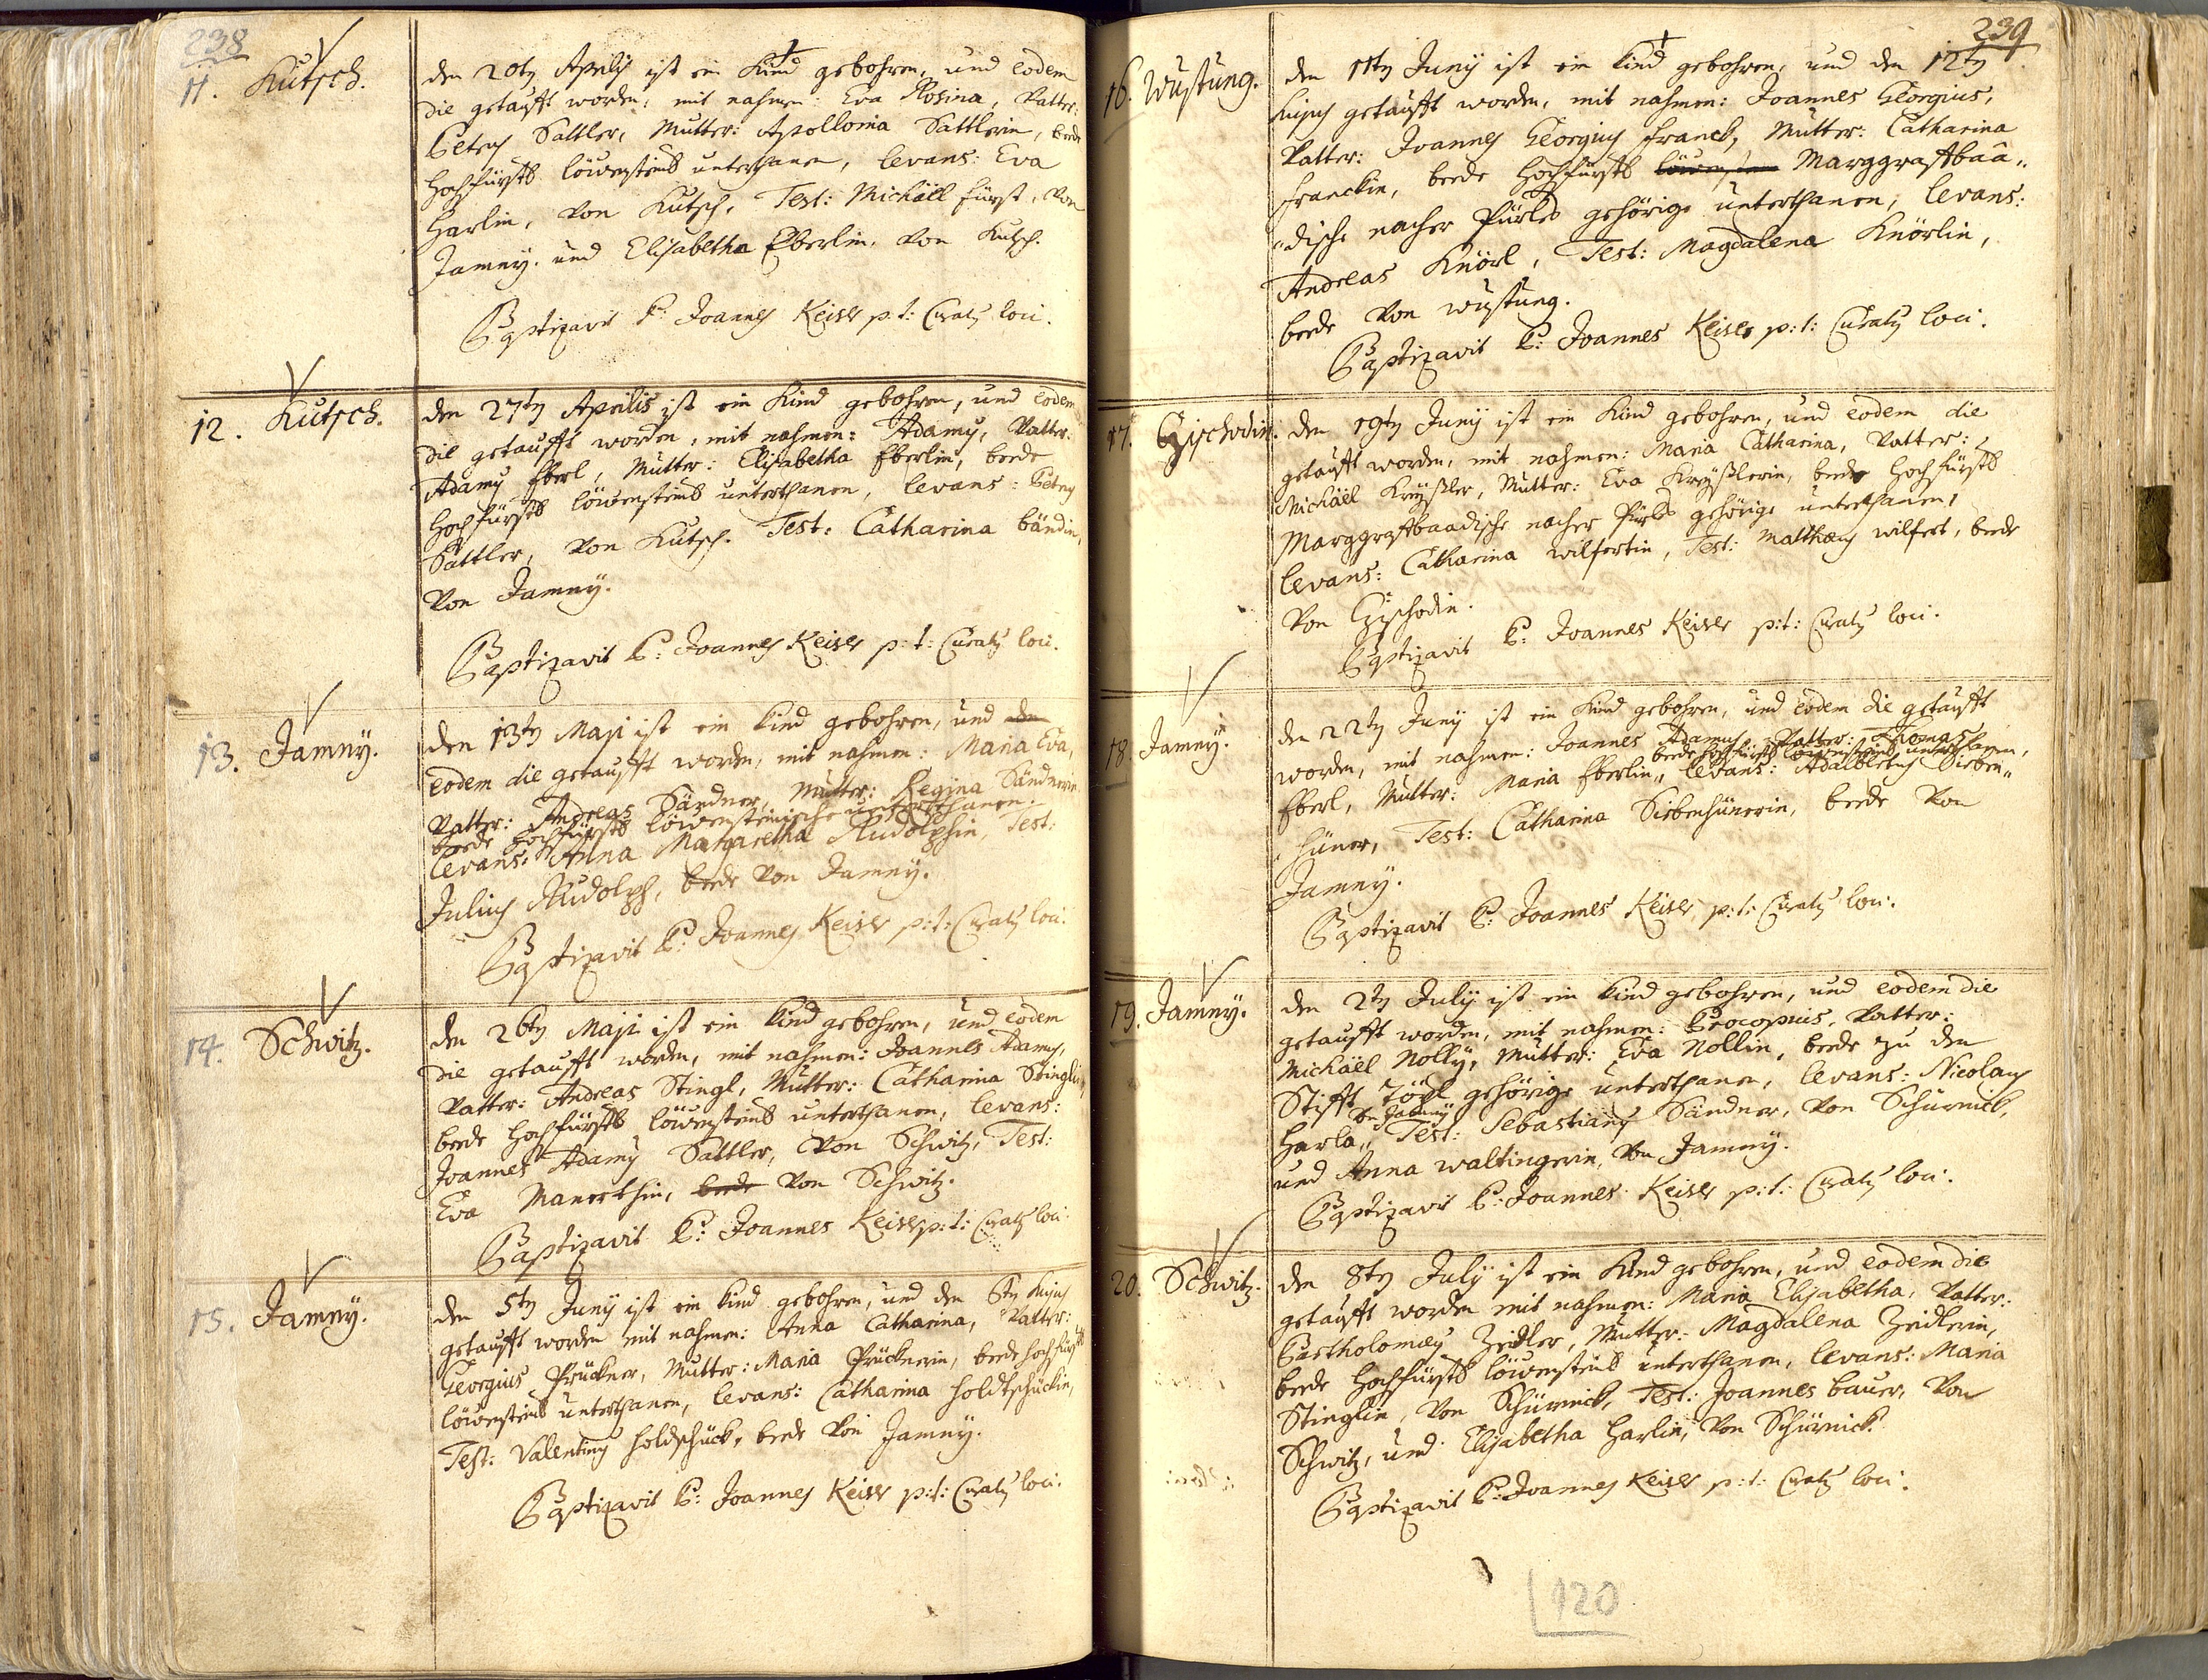 238
11. Kutsch.
den 20ty Aprilis ist ein Kind gebohren, und eodem
die getaufft worden, mit nahmen: Eva Rosina, Vatter:
Petrus Sattler, Mutter: Apollonia Sattlerin, beede
hochfürstl löwensteinl unterthanen, levans: Eva
Harlin, von Kutsch, Test: Michäel fürst, von
Jamny. und Elisabetha Eberlin, von Kutsch.
Baptizavit P: Joannes Keiser p.t: Curatus loci.
12. Kutsch.
den 27ty Aprilis ist ein Kind gebohren, und eodem
die getaufft worden, mit nahmen: Adamus, Vatter:
Adamus Eberl, Mutter: Elisabetha Eberlin, beede
hochfürstl löwensteinl unterthanen, levans: Petrus
Sattler, von Kutsch. Test: Catharina bändin,
von Jamny.
Baptizavit P: Joannes Keiser p:t: Curatus loci.
13. Jamny.
den 13ty Maji ist ein kind gebohren, und den
eodem die getaufft worden, mit nahmen: Maria Eva,
Vatter: Andreas Sändner, Mutter: Regina Sändnerin
beede hochfürstl löwensteinische unterthanen.
levans: Anna Margaretha Rudolphin, Test:
Julius Rudolph, beede von Jamny.
Baptizavit P: Joannes Keiser p:t: Curatus loci.
14. Schwitz.
den 26ty Maji ist ein kind gebohren, und eodem
die getaufft worden, mit nahmen: Joannes Adamus,
Vatter: Andreas Stingl, Mutter: Catharina Stinglin,
beede hochfürstl löwensteinl unterthanen, levans:
Joannes Adamus Sattler, von Schwitz, Test:
Eva Manerthin, beede von Schwitz.
Baptizavit P: Joannes Keiser p:t: Curatus loci.
15. Jamny.
den 5ty Juny ist ein kind gebohren, und den 6ty hujus
getaufft worden mit nahmen: Anna Catharina, Vatter:
Georgius Prückner, Mutter: Maria Prücknerin, beede hochfürstl
löwensteinl unterthanen, levans: Catharina holdtschückin,
Test: Valentinus holdschück, beede von Jamny.
Baptizavit P: Joannes Keiser p:t: Curatus loci.
239
16. Wustung.
den 11ty Juny ist ein kind gebohren, und den 12ty
hujus getaufft worden, mit nahmen: Joannes Georgius,
Vatter: Joannes Georgius franck, Mutter: Catharina
franckin, beede hochfürstl löwenstein Marggraffbaa„
„dische nacher Pürles gehörige unterthanen, levans:
Andreas Knörl, Test: Magdalena Knörlin,
beede von wustung.
Baptizavit P: Joannes Keiser p:t: Curatus loci.
17. Czischodin.
den 19ty Juny ist ein Kind gebohren, und eodem die
getaufft worden, mit nahmen: Maria Catharina, Vatter:
Michäel Kreyßler, Mutter: Eva Kreyßlerin, beede hochfürstl
Marggraffbaadische nacher Pürles gehörige unterthanen,
levans: Catharina wilfertin, Test: Matthæus wilfert, beede
von Czischodin.
Baptizavit P: Joannes Keiser p:t: Curatus loci.
18. Jamny.
den 22ty Juny ist ein Kind gebohren, und eodem die getaufft
worden, mit nahmen: Joannes Adamus, Vatter: Thomas
beede hochfürstl löwensteinl unterthanen,
Eberl, Mutter: Maria Eberlin„ levans: Adalbertus Sieben„
hüner, Test: Catharina Siebenhünerin, beede von
Jamny.
Baptizavit P: Joannes Keiser, p:t: Curatus loci.
19. Jamny.
den 2ty July ist ein kind gebohren, und eodem die
getaufft worden, mit nahmen: Procopius, Vatter:
Michäel Nolly, Mutter: Eva Nollin, beede zu den
Stifft Töpl gehörige unterthanen, levans: Nicolaus
von Jamny
Harla„ Test: Sebastianus Sändner, von Schürnick,
und Anna waltingerin, von Jamny.
Baptizavit P: Joannes Keiser p:t: Curatus loci.
20. Schwitz.
den 8ty July ist ein Kind gebohren, und eodem die
getaufft worden mit nahmen: Maria Elisabetha, Vatter:
Bartholomæus Zeidler, Mutter: Magdalena Zeidlerin,
beede hochfürstl löwensteinl unterthanen, levans: Maria
Stinglin, von Schürnick, Test: Joannes bauer, von
Schwitz, und Elisabetha Harlin, von Schürnick.
Baptizavit P: Joannes Keiser p:t: Curatus loci.
120